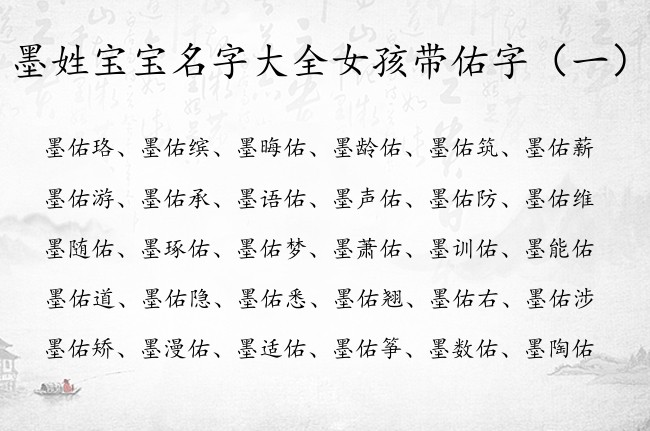 墨姓宝宝名字大全女孩带佑字（一）
墨佑珞、墨佑缤、墨晦佑、墨龄佑、墨佑筑、墨佑薪
墨佑游、墨佑承、墨语佑、墨声佑、墨佑防、墨佑维
墨随佑、墨琢佑、墨佑梦、墨萧佑、墨训佑、墨能佑
墨佑道、墨佑隐、墨佑悉、墨佑翘、墨佑右、墨佑涉
墨佑矫、墨漫佑、墨适佑、墨佑筝、墨数佑、墨陶佑